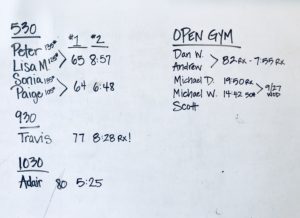 530
#1 #2
Peter 135#
Lisa M 125# > 65 8:57
Sonia 135#
Paige 105# > 64 6:48
930
Travis 77 8:28 RX!
1030
Adair 80 5:25
OPEN GYM
Dan W.
Andrew > 82 RX - 7:55 RX
Michael D. 19:50 RX
Michael W. 14:42 > 9/27 WOD
Scott